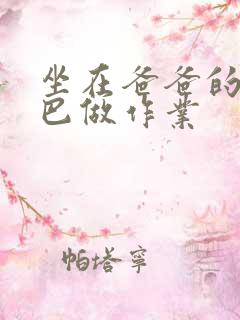 坐在爸爸的
巴做作業
帕塔寧